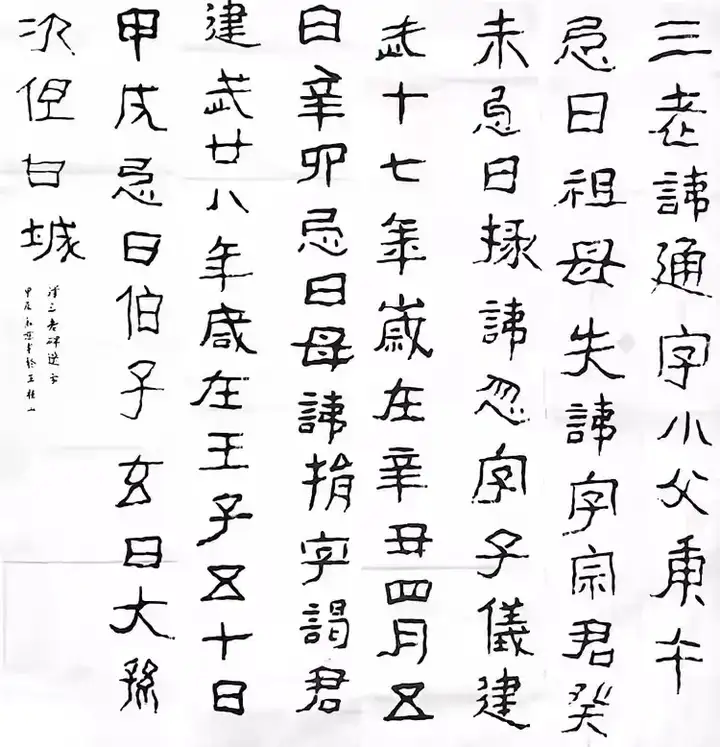 三老諱通字小父庚午
忌日祖母失諱字宗君癸
未忌日掾諱忽字子儀建
武十七年歲在辛丑四月五
日辛卯忌日母諱捐字謁君
建武廿八年歲在壬子五十日
甲戌忌日伯子玄曰大孫
次但曰城
三老碑
甲辰秋書於五桂山